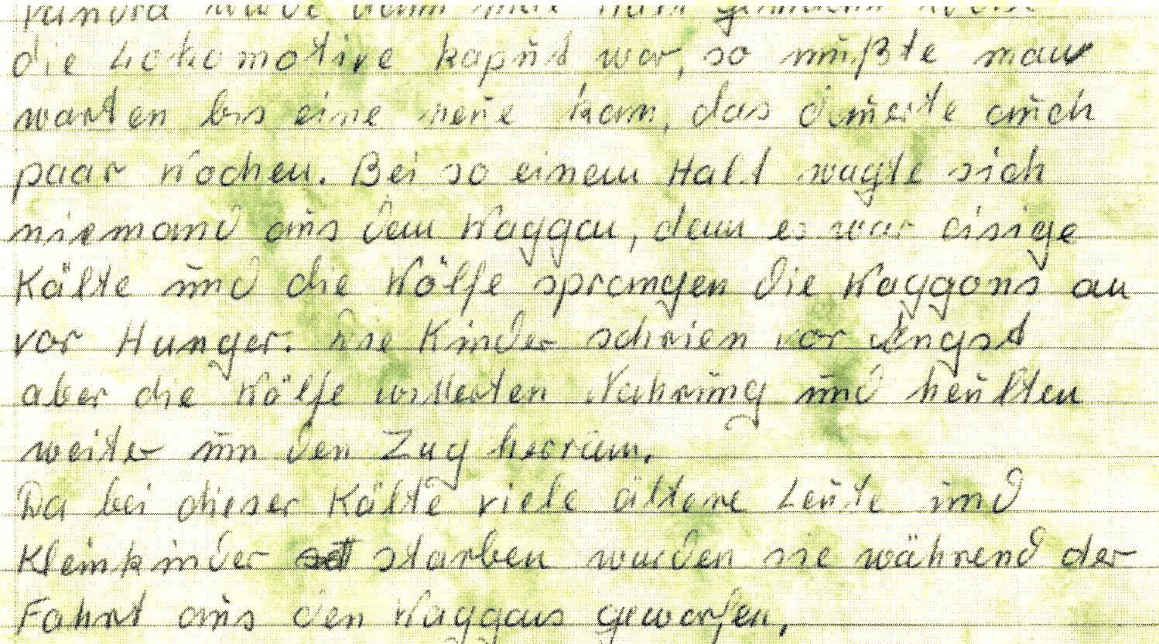 wurde dann
die Lokomotive kaput war, so mußte man
warten bis eine neue kam, das dauerte auch
paar Wochen. Bei so einem Halt wagte sich
niemand aus dem Waggon, denn es war eisige
Kälte und die Wölfe sprangen die Waggons an
vor Hunger. Die Kinder schrien vor Angst
aber die Wölfe witterten Nahrung und heulten
weiter um den Zug herrum.
Da bei dieser Kälte viele ältere Leute und
Kleinkinder starben wurden sie während der
Fahrt aus den Waggons geworfen,